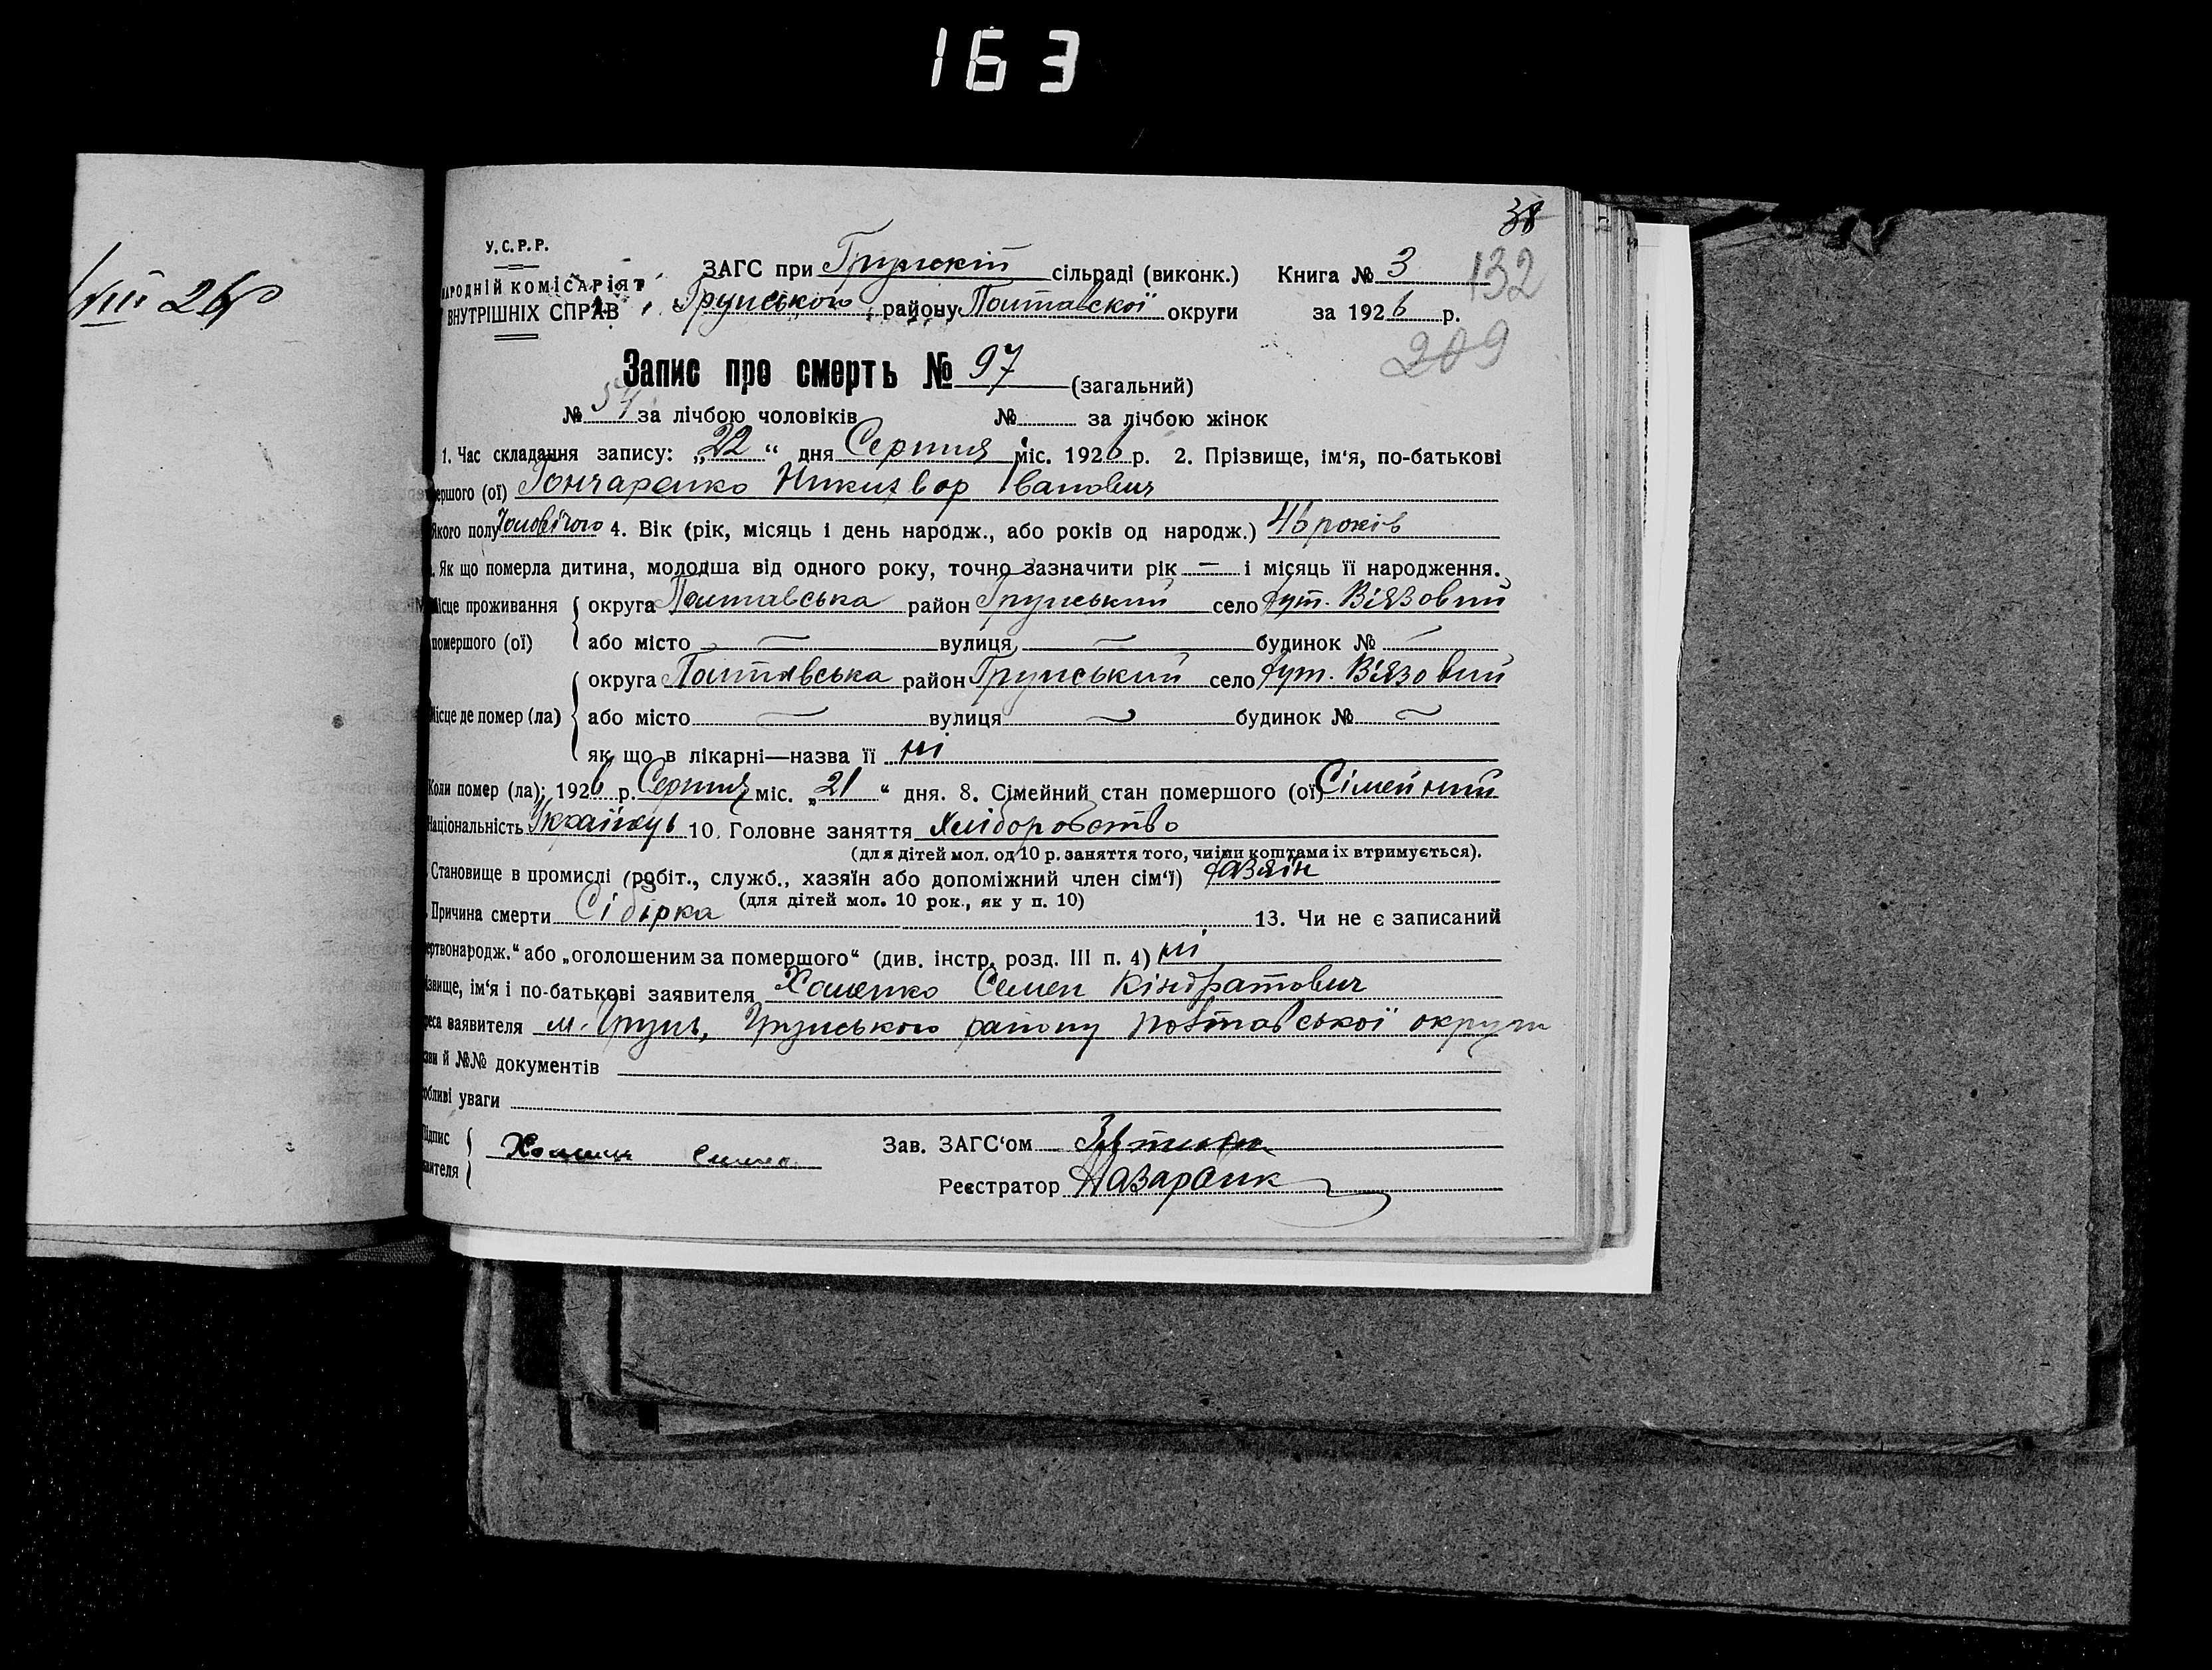 163
38
VIII 26 р
У.С.Р.Р.
НАРОДНІЙ КОМІСАРІЯТ
ВНУТРІШНІХ СПРАВ
ЗАГС при Грунскій сільраді (виконк.) Книга № 3 132
Грунського району Полтавскої округи за 1926 р.
209
Запис про смерть № 97 (загальний)
№ 57 за лічбою чоловіків № за лічбою жінок
1. Час складання запису: „22“ дня Серпня міс. 1926 р. 2. Прізвище, ім‘я, по-батькові
мершого (ої) Гончаренко Никифор Іванович
Якого полу Чоловічого 4. Вік (рік, місяць і день народж., або років од народж.) 46 років
. Як що померла дитина, молодша від одного року, точно зазначити рік — і місяць її народження.
Місце проживання округа Полтавська район Грунський село хут. Вязовий
помершого (ої) або місто — вулиця — будинок № —
округа Полтавська район Грунський село хут. Вязовий
Місце де помер (ла) або місто — вулиця — будинок № —
як що в лікарні—назва її ні
Коли помер (ла): 1926 р. Серпня міс. „21“ дня. 8. Сімейний стан помершого (ої) Сімейний
Національність Українець 10. Головне заняття Хліборобство
(для дітей мол. од 10 р. заняття того, чиїми коштами їх втримується).
Становище в промислі (робіт., служб., хазяїн або допоміжний член сім‘ї) хазяїн
(для дітей мол. 10 рок., як у п. 10)
. Причина смерти Сібірка 13. Чи не є записаний
ертвонародж.“ або „оголошеним за помершого“ (див. інстр. розд. III п. 4) ні
ізвище, ім‘я і по-батькові заявителя Хоменко Семен Кіндратович
реса заявителя м. Грунь, Грунського району Повтавської округи
зви й №№ документів
обливі уваги
Підпис
явителя
Зав. ЗАГС‘ом
Реєстратор